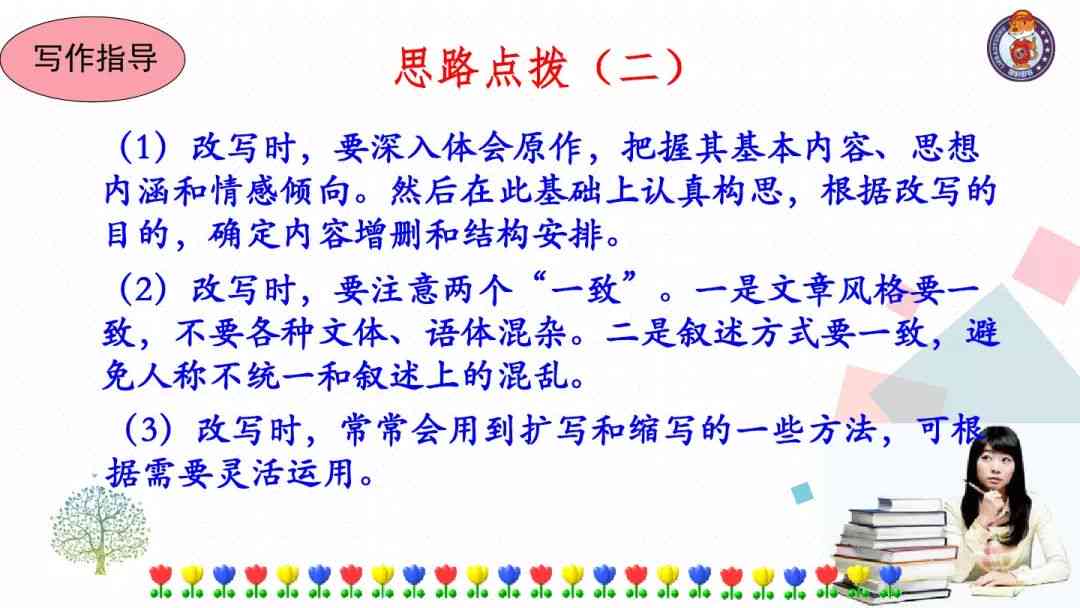 写作指导
思路点拨（二）
（1）改写时，要深入体会原作，把握其基本内容、思想
内涵和情感倾向。然后在此基础上认真构思，根据改写的
目的，确定内容增删和结构安排。
（2）改写时，要注意两个“一致”。一是文章风格要一
致，不要各种文体、语体混杂。二是叙述方式要一致，避
免人称不统一和叙述上的混乱。
（3）改写时，常常会用到扩写和缩写的一些方法，可根
据需要灵活运用。